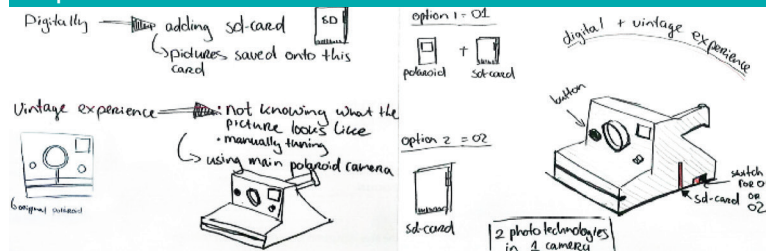 Digitally adding sd-card
SD
pictures saved onto this
card
Vintage experience : not knowing what the
picture looks like
• manually tuning
using main polaroid camera
original polaroid
option 1 = O1
polaroid + sd-card
option 2 = O2
sd-card
digital + vintage experience
button
switch
FOR O1
OR
O2
sd-card
2 photo technologies
in 1 camera